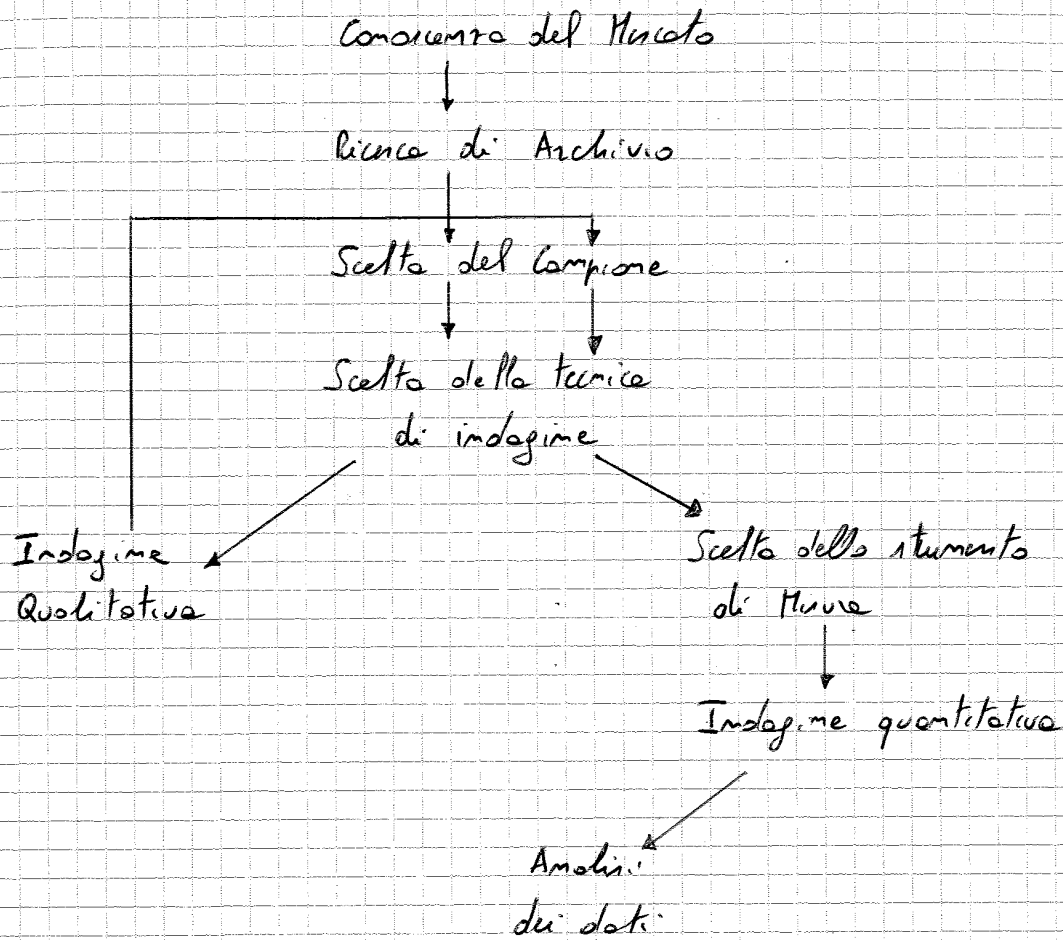 Conoscenza del Mercato
Ricerca di Archivio
Scelta del Campione
Scelta della tecnica
di indagine
Indagine
Qualitativa
Scelta dello strumento
di Misura
Indagine quantitativa
Analisi
dei dati